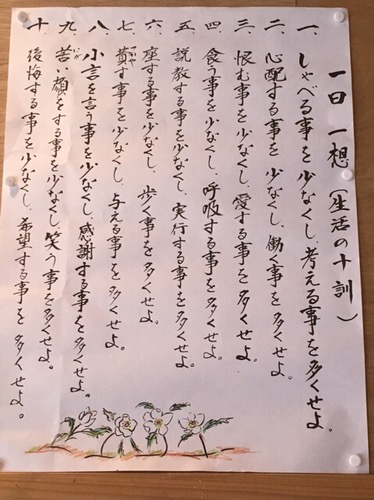 一日一想（生活の十訓）
一、しゃべる事を少なくし考える事を多くせよ。
二、心配する事を少なくし、働く事を多くせよ。
三、恨む事を少なくし、愛する事を多くせよ。
四、食う事を少なくし、呼吸する事を多くせよ。
五、説教する事を少なくし、実行する事を多くせよ。
六、座する事を少なくし、歩く事を多くせよ。
七、費す事を少なくし、与える事を多くせよ。
八、小言を言う事を少なくし、感謝する事を多くせよ。
九、苦い顔をする事を少なくし笑う事を多くせよ。
十、後悔する事を少なくし、希望する事を多くせよ。